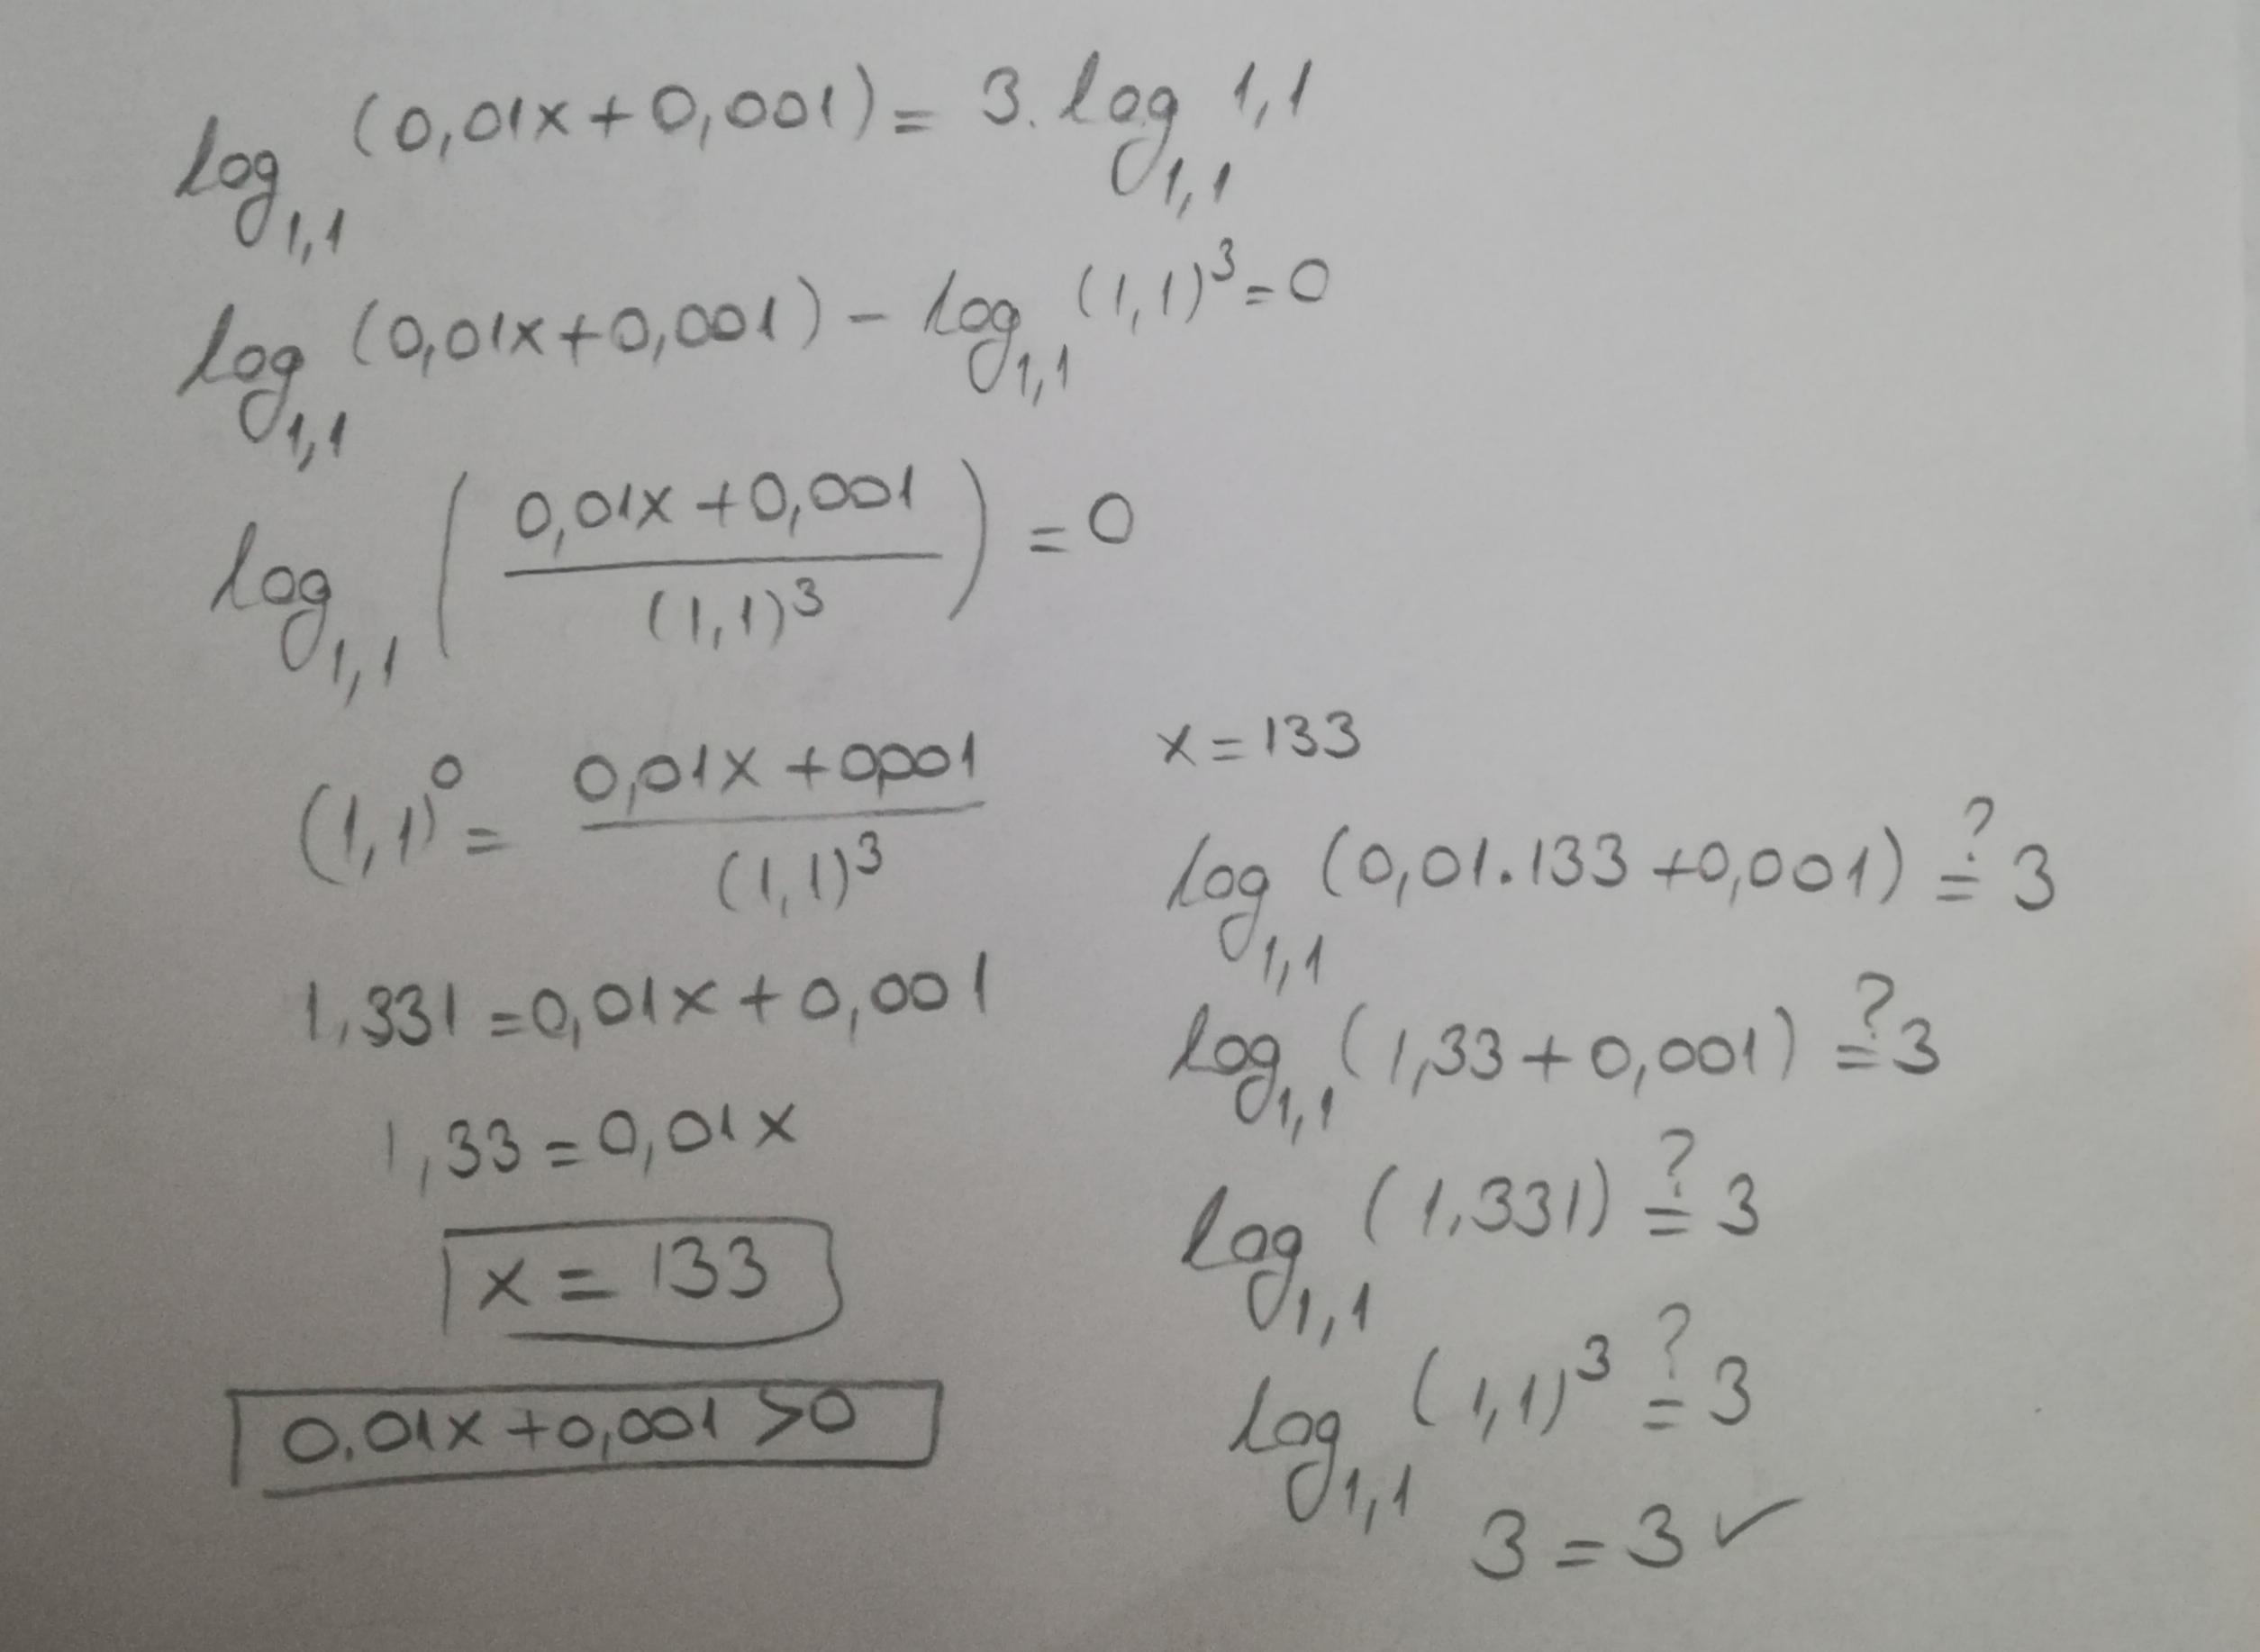 log₁,₁ (0,01x + 0,001) = 3. log₁,₁ 1,1
log₁,₁ (0,01x + 0,001) - log₁,₁ (1,1)³ = 0
log₁,₁ ( (0,01x + 0,001) / (1,1)³ ) = 0
(1,1)⁰ = (0,01x + 0,001) / (1,1)³
1,331 = 0,01x + 0,001
1,33 = 0,01x
x = 133
0.01x + 0,001 > 0
x = 133
log₁,₁ (0,01.133 + 0,001) =? 3
log₁,₁ (1,33 + 0,001) =? 3
log₁,₁ (1.331) =? 3
log₁,₁ (1,1)³ =? 3
3 = 3 ✓